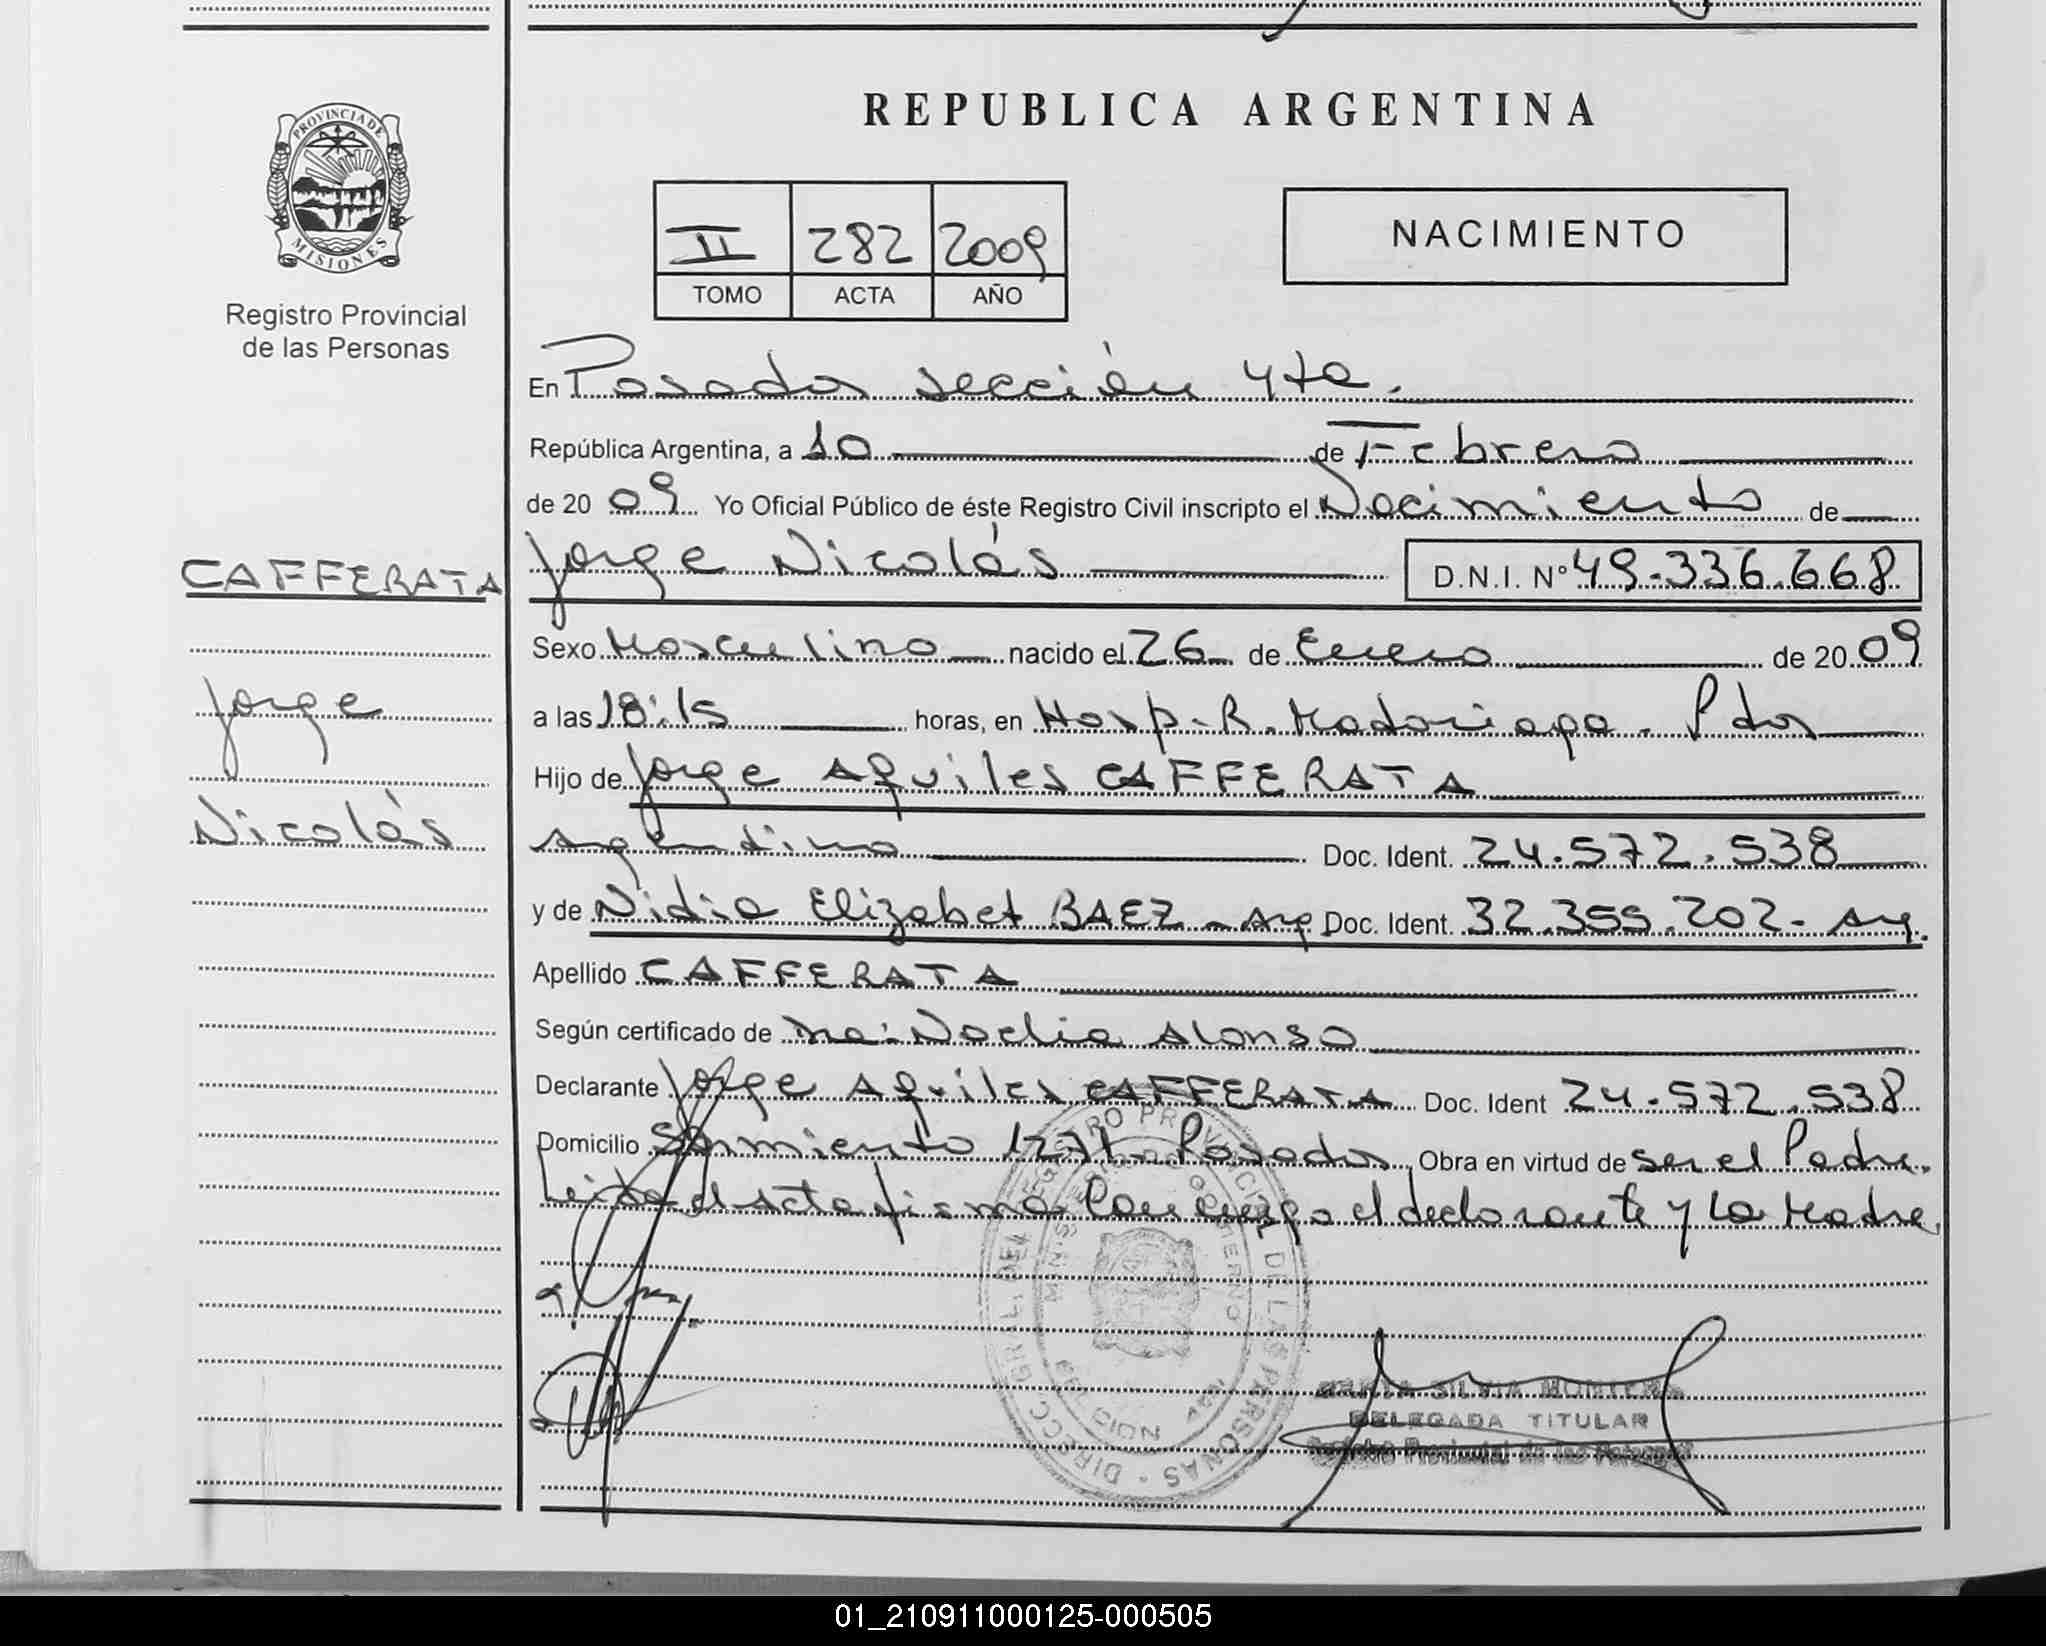 REPUBLICA ARGENTINA
PROVINCIA DE
MISIONES
Registro Provincial
de las Personas
II 282 2009
TOMO ACTA AÑO
NACIMIENTO
En Posadas sección 4ta.
República Argentina, a 10 de Febrero
de 2009 Yo Oficial Público de éste Registro Civil inscripto el Nacimiento de
CAFFERATA
Jorge Nicolás D.N.I. Nº 49.336.668
Sexo Masculino nacido el 26 de Enero de 2009
Jorge
a las 18:15 horas, en Hosp. R. Madariaga. Pdas
Hijo de Jorge Aquiles CAFFERATA
Nicolás
argentino Doc. Ident. 24.572.538
y de Nidia Elizabet BAEZ - Arg Doc. Ident. 32.355.202 - Arg.
Apellido CAFFERATA
Según certificado de Noelia Alonso
Declarante Jorge Aquiles CAFFERATA Doc. Ident 24.572.538
Domicilio Sarmiento 1271 Posadas Obra en virtud de ser el Padre.
Leída el acta firma conmigo el declarante y la Madre.
DIRECC. GRAL. DEL REGISTRO PROVINCIAL DE LAS PERSONAS
DELEGADA TITULAR
Registro Provincial de las Personas
01_210911000125-000505